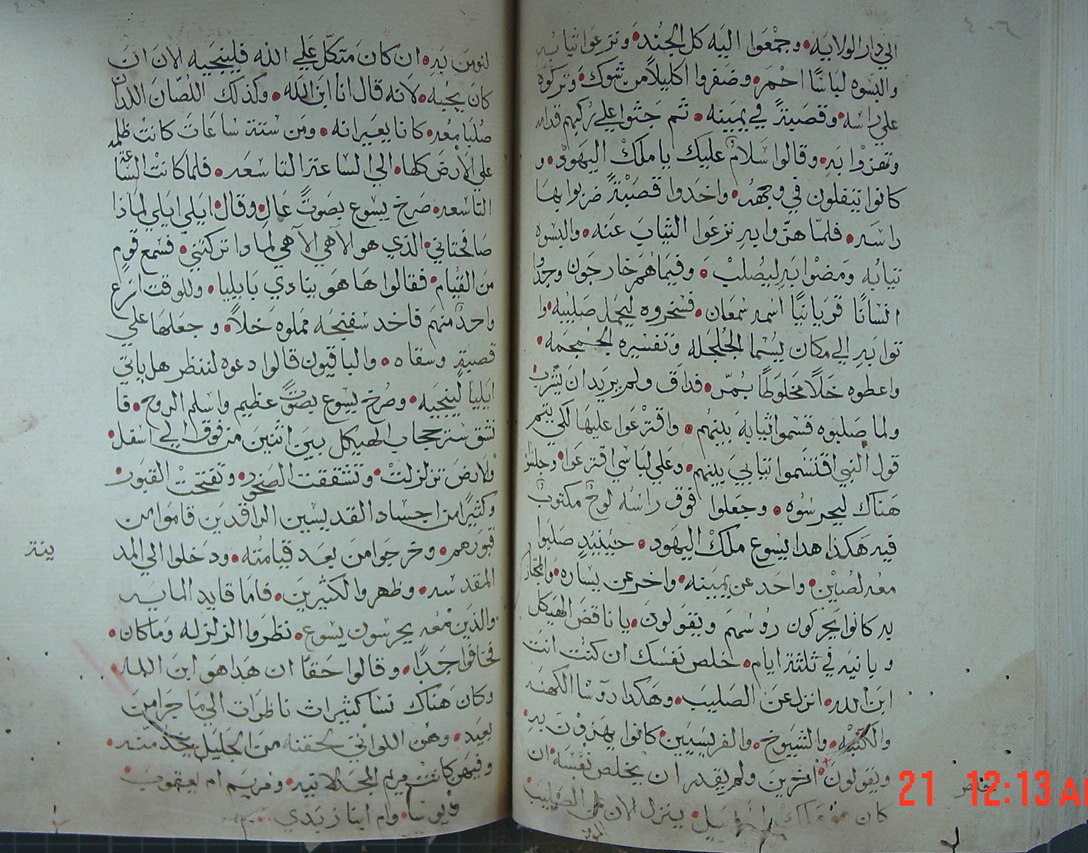 الي دار الولايه. وجمعوا اليه كل الجند. ونزعوا ثيابه
والبسوه لباسًا احمر. وضفروا اكليلاً من شوك. وتركوه
علي راسه. وقصبةً في يمينه. ثم جثوا علي ركبهم قدامه
وتهزوا به. وقالوا سلامٌ عليك يا ملك اليهود. و
كانوا يتفلون في وجهه. واخدوا قصبةً ضربوا بها
راسه. فلما هزّوا به نزعوا الثياب عنه. والبسوه
ثيابه ومضوا به ليُصلب. وفيما هم خارجون وجدوا
انسانًا قريانيًا اسمه سمعان. فسخروه ليحمل صليبه. وا
توا به الي مكان يسما الجلجله وتفسيره الجمجمه.
واعطوه خلاً مخلوطًا بمرّ. فداق ولم يريد ان يشرب
ولما صلبوه قسموا ثيابه بينهم. واقترعوا عليها لكي يتم
قول النبي اقتسموا ثيابي بينهم. وعلي لباسي اقترعوا. وجلسوا
هناك ليحرسُوه. وجعلوا فوق راسه لوحٌ مكتوبٌ
فيه هكذا هدا يسوع ملك اليهود. حينيدٍ صلبوا
معه لصين. واحد عن يمينه. واخر عن يساره. والمجتاز
به كانوا يحركون روسهم ويقولون. يا ناقض الهيكل
وبانيه في ثلثة ايام. خلص نفسك ان كنت انت
ابن الله. انزل عن الصليب. وهكدا روسا الكهنه
والكتبه. والشيوخ. والفريسيين كانوا يهزون به
ويقولون. اخرين ولم يقدر ان يخلص نفسه. ان
كان ملك اسراييل. ينزل الان علي الصليب
لنومن به. ان كان متكل علي الله فلينجيه الان ان
كان يحبه. لانه قال انا ابن الله. وكذلك اللصان اللدان
صلبا معه. كانا يعيرانه. ومن ستة ساعات كانت ظلمه
علي الأرض كلها. الي الساعة التاسعه. فلما كانت الساعة
التاسعه. صرخ يسوع بصوتٍ عالٍ وقال. ايلي ايلي لماذا
صافختاني. الذي هو الاهي الاهي لما دا تركتني. فسمع قوم
من القيام. فقالوا ها هو ينادي بايليا. وللوقت اسرع
واحدٌ منهم فاخد سفنجه مملوه خلاً. وجعلها علي
قصبةٍ وسقاه. والباقيون قالوا دعوه لننظر هل ياتي
ايلياً لينجيه. وصرخ يسوع بصوتٍ عظيم واسلم الروح. فا
نشق ستر حجاب الهيكل بين اثنين من فوق الي اسفل.
ولارض تزلزلت. وتشققت الصخور. وتفتحت القبور
وكثيرًا من اجساد القديسين الراقدين قاموا من
قبورهم. وخرجوا من بعد قيامته. ودخلوا الي المد
المقدسه. وظهروا لكثيرين. فاما قايد المايه
والذين معه يحرسون يسوع. نظروا الزلزله وماكان.
فخافوا جدًا. وقالوا حقًا ان هدا هو ابن الله.
وكان هناك نسا كثيرات ناظرات الي ما جرا من
بعيد. وهن اللواتي لحقنه من الجليل يخدمنه.
وفيهن كانت مريم المجدلانيه. ومريم ام يعقوب
ويوسا. وام ابنا زبدي
ينة
21 12:13 A